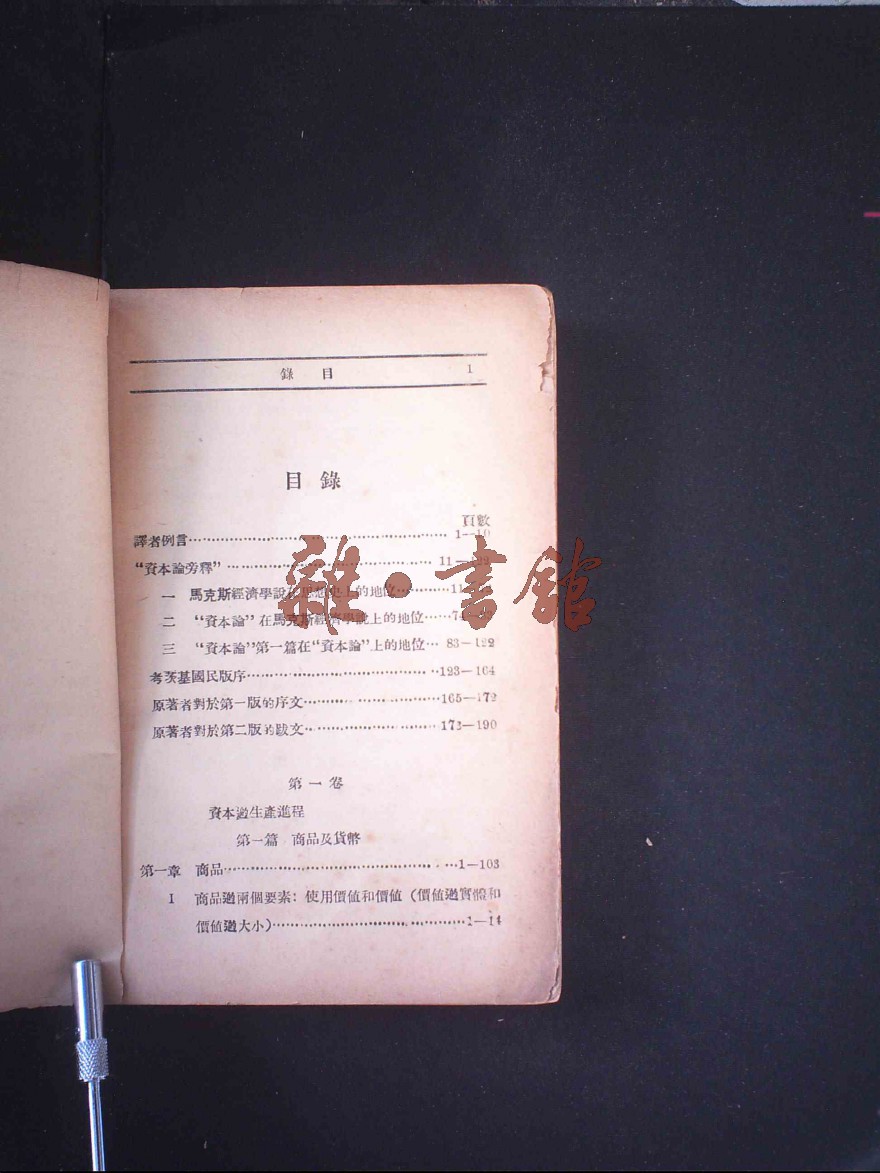 錄 目 1
目錄
頁數
譯者例言 1—10
“資本論旁釋” 11—122
一 馬克斯經濟學說在思想史上的地位 11
二 “資本論”在馬克斯經濟學說上的地位
三 “資本論”第一篇在“資本論”上的地位 83—122
考茨基國民版序 123—164
原著者對於第一版的序文 165—172
原著者對於第二版的跋文 173—190
第一卷
資本逧生產進程
第一篇 商品及貨幣
第一章 商品 1—103
I 商品逧兩個要素：使用價值和價值（價值逧實體和
價值逧大小） 1—14
雜·書館